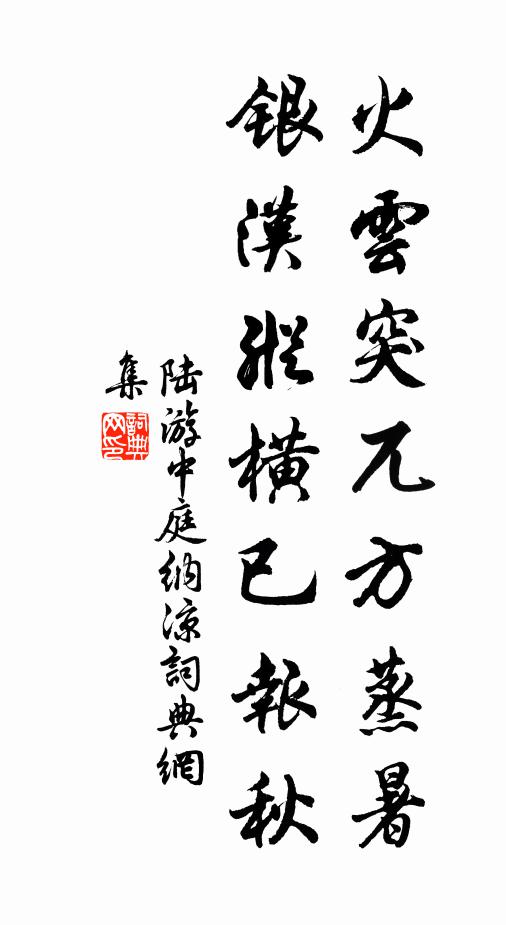 火雲突兀方蒸暑
銀漢縱橫已報秋
陆游中庭纳涼詞典網
集
詞典网印